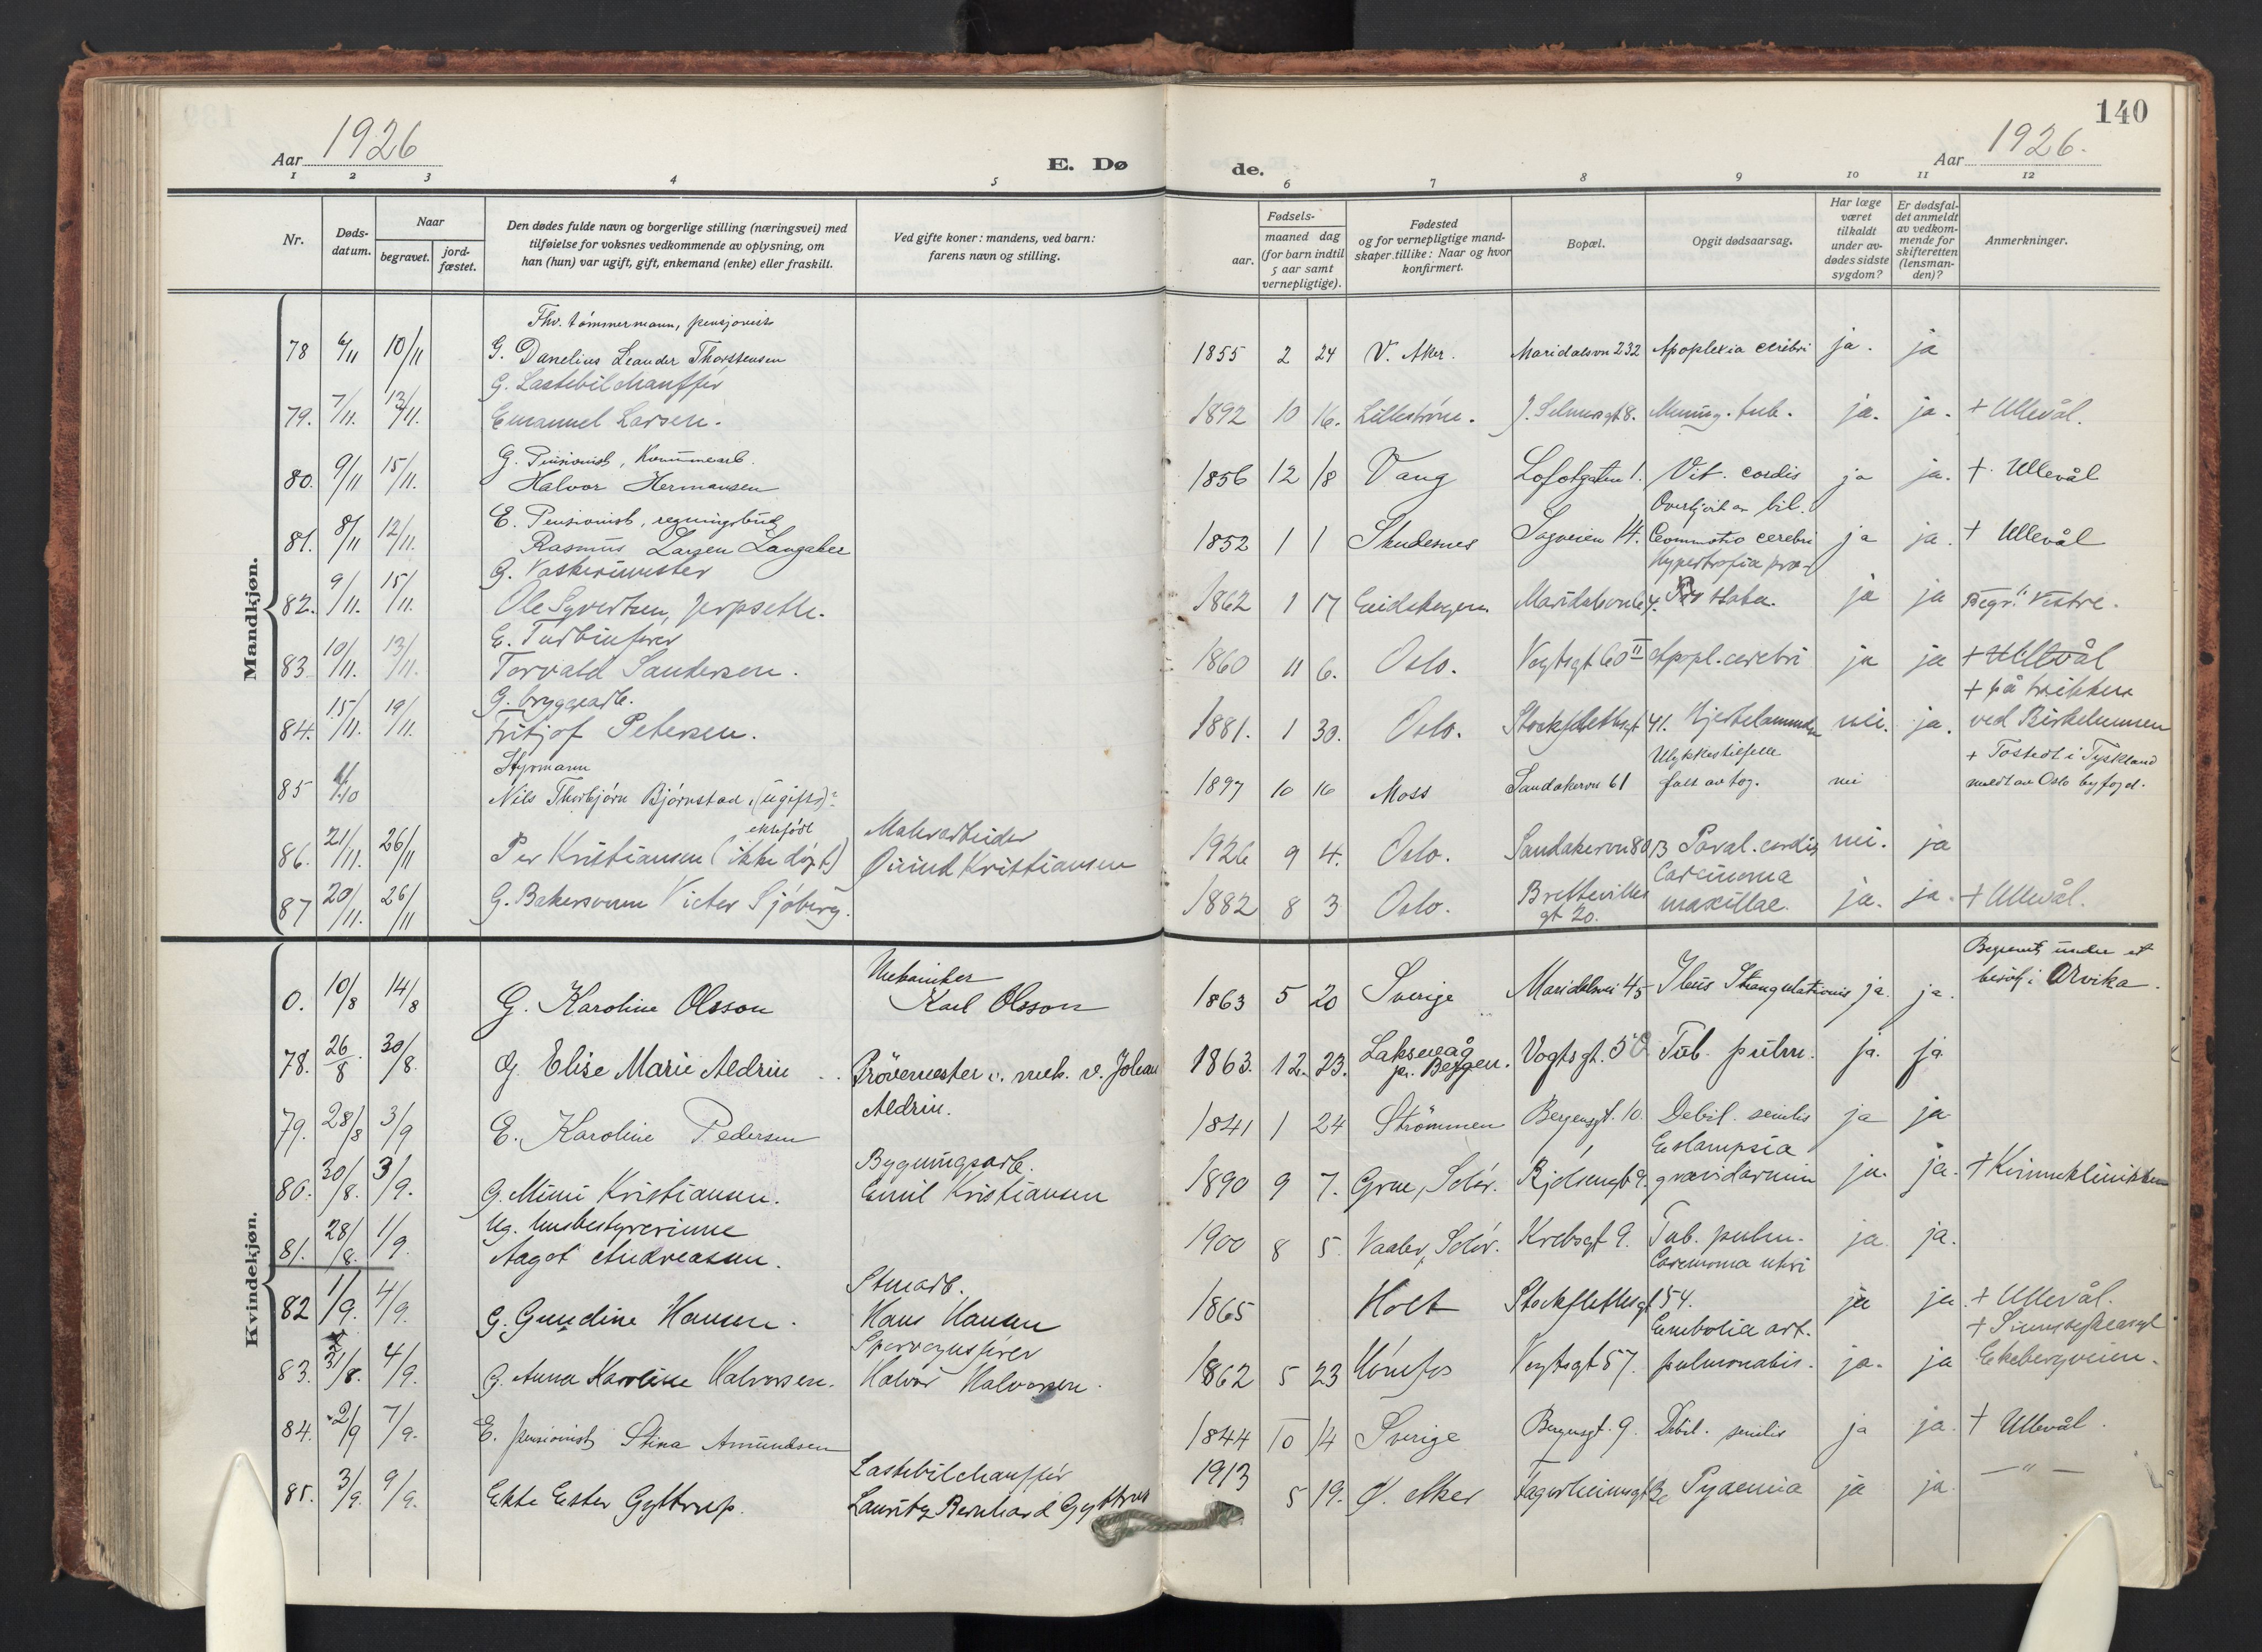 140
Aar 1926
E. Dø
de.
Aar 1926.
1 2 3 4 5 6 7 8 9 10 11 12
Nr.
Døds-datum.
Naar
begravet.
jord-fæstet.
Den dødes fulde navn og borgerlige stilling (næringsvei) med
tilføielse for voksnes vedkommende av oplysning, om
han (hun) var ugift, gift, enkemand (enke) eller fraskilt.
Ved gifte koner: mandens, ved barn:
farens navn og stilling.
Fødsels-
aar.
maaned dag
(for barn indtil
5 aar samt
vernepligtige).
Fødested
og for vernepligtige mand-
skaper tillike: Naar og hvor
konfirmert.
Bopæl.
Opgit dødsaarsag.
Har læge
været
tilkaldt
under av-
dødes sidste
sygdom?
Er dødsfal-
det anmeldt
av vedkom-
mende for
skifteretten
(lensman-
den)?
Anmerkninger.
Mandkjøn.
Fhv. tömmermann, pensjonist
78 6/11 10/11 G. Danelius Leander Thorstensen 1855 2 24 V. Aker. Maridalsvn 232 Apoplexia cerebri ja. ja
G. Lastebilchauffør
79. 7/11. 13/11. Emanuel Larsen. 1892 10 16. Lillestrøm. J. Selmersgt 8. Mening. tub. ja. ja. + Ullevål.
G. Pensionist, Kommunearb.
80. 9/11 15/11. Halvor Hermansen 1856 12 18 Vang Lofotgaten 1. Vit. cordis ja ja. + Ullevål
E. Pensionist, regningsbud Overkjørt av bil.
81. 8/11 12/11. Rasmus Larsen Langaker 1852 1 1 Skudesnes Sagveien 14. Commotio cerebri ja ja. + Ullevål
G. Vaskerimester Hypertrofia pro-
82. 9/11. 15/11. Ole Syvertsen Jerpseth. 1862 1 17 Eidskogen Maridalsvn 64. stata. ja ja Begr. Vestre.
E. Turbinfører
83 10/11. 13/11. Torvald Sandersen. 1860 11 6. Oslo. Vogtsgt 60 II Appl. cerebri ja ja + Ullevål
G. bryggearb. + på trikken
84. 15/11. 19/11. Fritjof Petersen. 1881. 1 30. Oslo. Stockflethsgt 41. Hjertelammelse nei. ja. ved Birkelunnen
Styrmann Ulykkestilfelle + Tostedt i Tyskland
85 4/10 Nils Thorbjørn Bjørnstad (ugift) 1897 10 16 Moss Sandakervn 61 falt av tog. nei meldt av Oslo byfogd.
ektefødt Malerarbeider
86. 21/11. 26/11 Per Kristiansen (ikke døpt) Øivind Kristiansen 1926 9 4. Oslo. Sandakervn 80 Paral. cordis nei. ja
Carcinoma
87 20/11. 26/11 G. Bakersvenn Victor Sjøberg. 1882 8 3 Oslo. Brettevilles gt 20. maxillae. ja. ja. + Ullevål.
Kvindekjøn.
Mekaniker Begravet under et
0. 10/8 14/8 G. Karoline Olsson Karl Olsson 1863 5 20 Sverige Maridalsvei 45 Ileus Strangulationis ja. ja. besøk i Arvika.
78. 26/8. 30/8. G. Elise Marie Aldrin Prövemester v. mek. v. Johan Aldrin. 1863. 12. 23. Laksevåg pr. Bergen. Vogtsgt. 50 Tub. pulm. ja. ja.
79. 28/8 3/9 E. Karoline Pedersen 1841 1 24 Strömmen Bergensgt. 10. Debil. senilis ja ja
Bygningsarb. Eclampsia
80. 30/8. 3/9. G. Mimi Kristiansen. Emil Kristiansen 1890 9 7. Grue, Solør. Bjølsengt 9. gravidarum ja. ja. + Kvinneklinikken
Ug. husbestyrerinne
81. 28/8. 1/9. Aagot Andreasen. 1900 8 5. Vaaler, Solør. Krebsgt 9. Tub. pulm. ja. ja.
Stenarb. Carcinoma uteri
82 1/9. 4/9. G. Gundine Hansen. Hans Hansen 1865 Holt Stockflethsgt 54. ja ja. + Ullevål.
Sporveysfører Embolia art.
83. 31/8. 4/9. G. Anna Karoline Halvorsen. Halvor Halvorsen. 1862 5 23 Hönefos Vogtsgt 57. pulmonalis. ja. ja Ekebergveien.
84. 2/9 7/9. E. pensionist Stina Amundsen 1844 10 14 Sverige Bergensgt. 9. Debil. senilis ja ja. + Ullevål.
Lastebilchauffør
85. 3/9. 9/9. Ekte Ester Gyttrup. Lauritz Bernhard Gyttrup 1913 5 19. Ø. Aker Fagerheimsgt Pyaemia ja ja. — " —